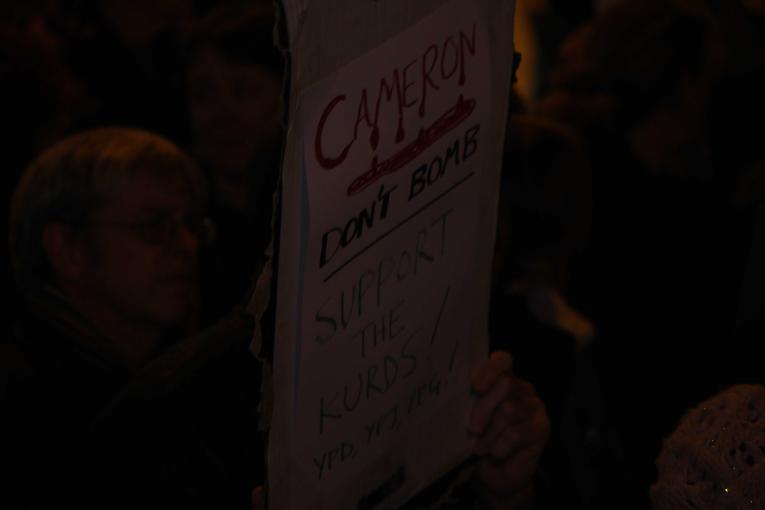 CAMERON
DON'T BOMB
SUPPORT
THE
KURDS!
YPD, YPJ, YPG.!